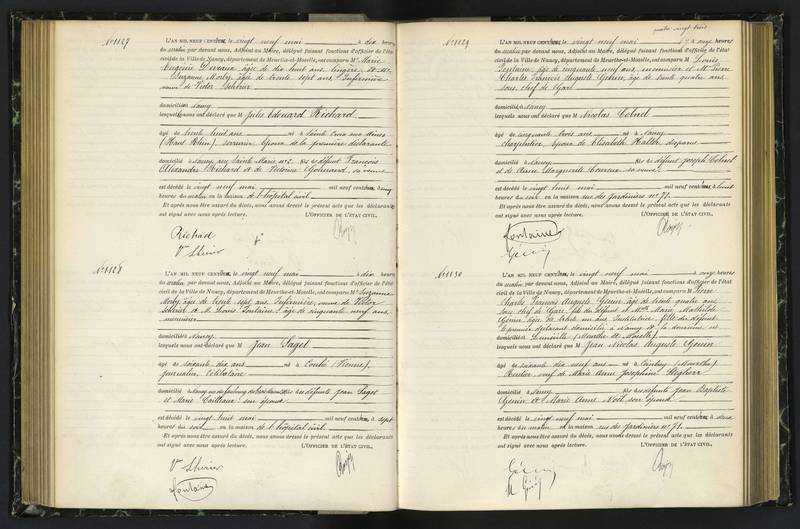 N° 1127
L'AN MIL NEUF CENT un, le vingt neuf mai à dix heures
du matin par devant nous, Adjoint au Maire, délégué faisant fonctions d'officier de l'état
civil de la Ville de Nancy, département de Meurthe-et-Moselle, ont comparu Me Marie
Eugénie âgée de dix huit ans lingère et Me
Suzanne Morly âgée de trente sept ans Infirmière
veuve de Victor
domiciliés à Nancy
lesquels nous ont déclaré que M Jules Edouard Richard
âgé de trente huit ans né à Sainte Croix aux Mines
(Haut Rhin), serrurier époux de la première déclarante
domicilié à Nancy, rue Sainte Marie n° 2. fils de défunt François
Alexandre Richard et de Victorine sa veuve
est décédé le vingt neuf mai mil neuf cent un, à cinq
heures du matin en la maison de l'hôpital civil
Et après nous être assuré du décès, nous avons dressé le présent acte que les déclarants
ont signé avec nous après lecture. L'OFFICIER DE L'ÉTAT CIVIL,
Richad
Ve
N° 1128
L'AN MIL NEUF CENT un, le vingt neuf mai à dix heures
du matin, par devant nous, Adjoint au Maire, délégué faisant fonctions d'officier de l'état
civil de la Ville de Nancy, département de Meurthe-et-Moselle, ont comparu Me Suzanne
Morly âgée de trente sept ans Infirmière, veuve de Victor
et M. Louis Fontaine âgé de cinquante neuf ans
menuisier
domiciliés à Nancy
lesquels nous ont déclaré que M Jean Paget
âgé de soixante dix ans né à (Vienne),
journalier, célibataire
domicilié à Nancy rue du faubourg fils de défunts Jean Paget
et Marie son épouse
est décédé le vingt huit mai mil neuf cent un à sept
heures du soir en la maison de l'hôpital civil
Et après nous être assuré du décès, nous avons dressé le présent acte que les déclarants
ont signé avec nous après lecture. L'OFFICIER DE L'ÉTAT CIVIL,
Ve
Fontaine
quatre vingt trois
N° 1129
L'AN MIL NEUF CENT un, le vingt neuf mai à onze heures
du matin par devant nous, Adjoint au Maire, délégué faisant fonctions d'officier de l'état
civil de la Ville de Nancy, département de Meurthe-et-Moselle, ont comparu M Louis
Fontaine âgé de cinquante neuf ans, menuisier et M. Pierre
Charles François Auguste Génin, âgé de trente quatre ans
sous chef de Gare
domiciliés à Nancy
lesquels nous ont déclaré que M Nicolas Colnel
âgé de cinquante trois ans né à Nancy
charpentier époux de Elisabeth disparue
domicilié à Nancy fils de défunt Joseph Colnel
et de Anne Marguerite sa veuve
est décédé le vingt huit mai mil neuf cent un à huit
heures du soir en la maison rue des Jardiniers n° 71.
Et après nous être assuré du décès, nous avons dressé le présent acte que les déclarants
ont signé avec nous après lecture. L'OFFICIER DE L'ÉTAT CIVIL,
Fontaine
Génin
N° 1130
L'AN MIL NEUF CENT un, le vingt neuf mai à onze heures
du matin, par devant nous, Adjoint au Maire, délégué faisant fonctions d'officier de l'état
civil de la Ville de Nancy, département de Meurthe-et-Moselle, ont comparu M Pierre
Charles François Auguste Génin âgé de trente quatre ans
sous chef de Gare fils du défunt et Melle Marie Mathilde
Génin âgée de trente un ans Institutrice, fille du défunt
le premier déclarant domicilié à Nancy et la deuxième à
domiciliés à Lunéville (Meurthe et Moselle)
lesquels nous ont déclaré que M Jean Nicolas Auguste Génin
âgé de soixante dix neuf ans né à (Meurthe)
Rentier veuf de Marie Anne Joséphine
domicilié à Nancy fils de défunts Jean Baptiste
Génin et Marie Anne Noël son épouse
est décédé le vingt neuf mai mil neuf cent un à deux
heures du matin en la maison rue des Jardiniers n° 71.
Et après nous être assuré du décès, nous avons dressé le présent acte que les déclarants
ont signé avec nous après lecture. L'OFFICIER DE L'ÉTAT CIVIL,
Génin
M Génin